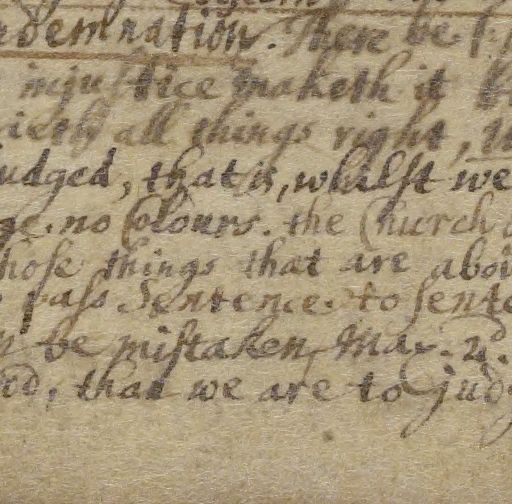 demnation. There be
injustice maketh it
rieth all things right,
udged, that is, whilst we
ge. no Colours. the Church
hose things that are abov
pass Sentence. to sente
be mistaken, Max. 2d.
nd, that we are to judg